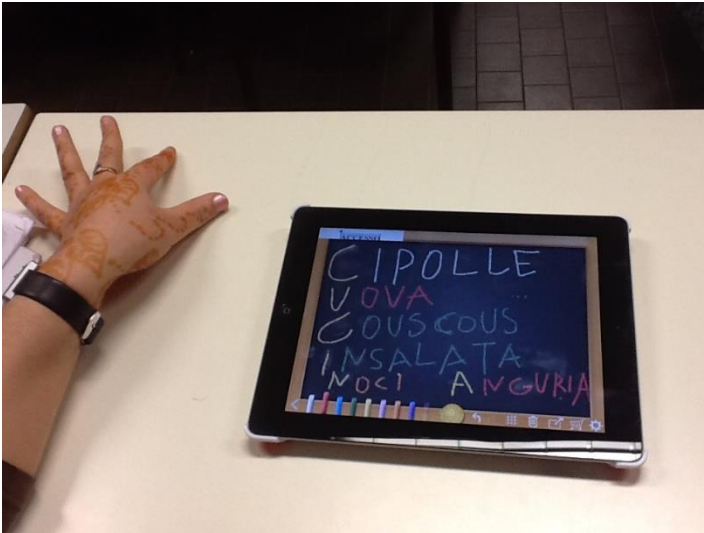 CIPOLLE
UOVA
COUSCOUS
INSALATA
NOCI ANGURIA